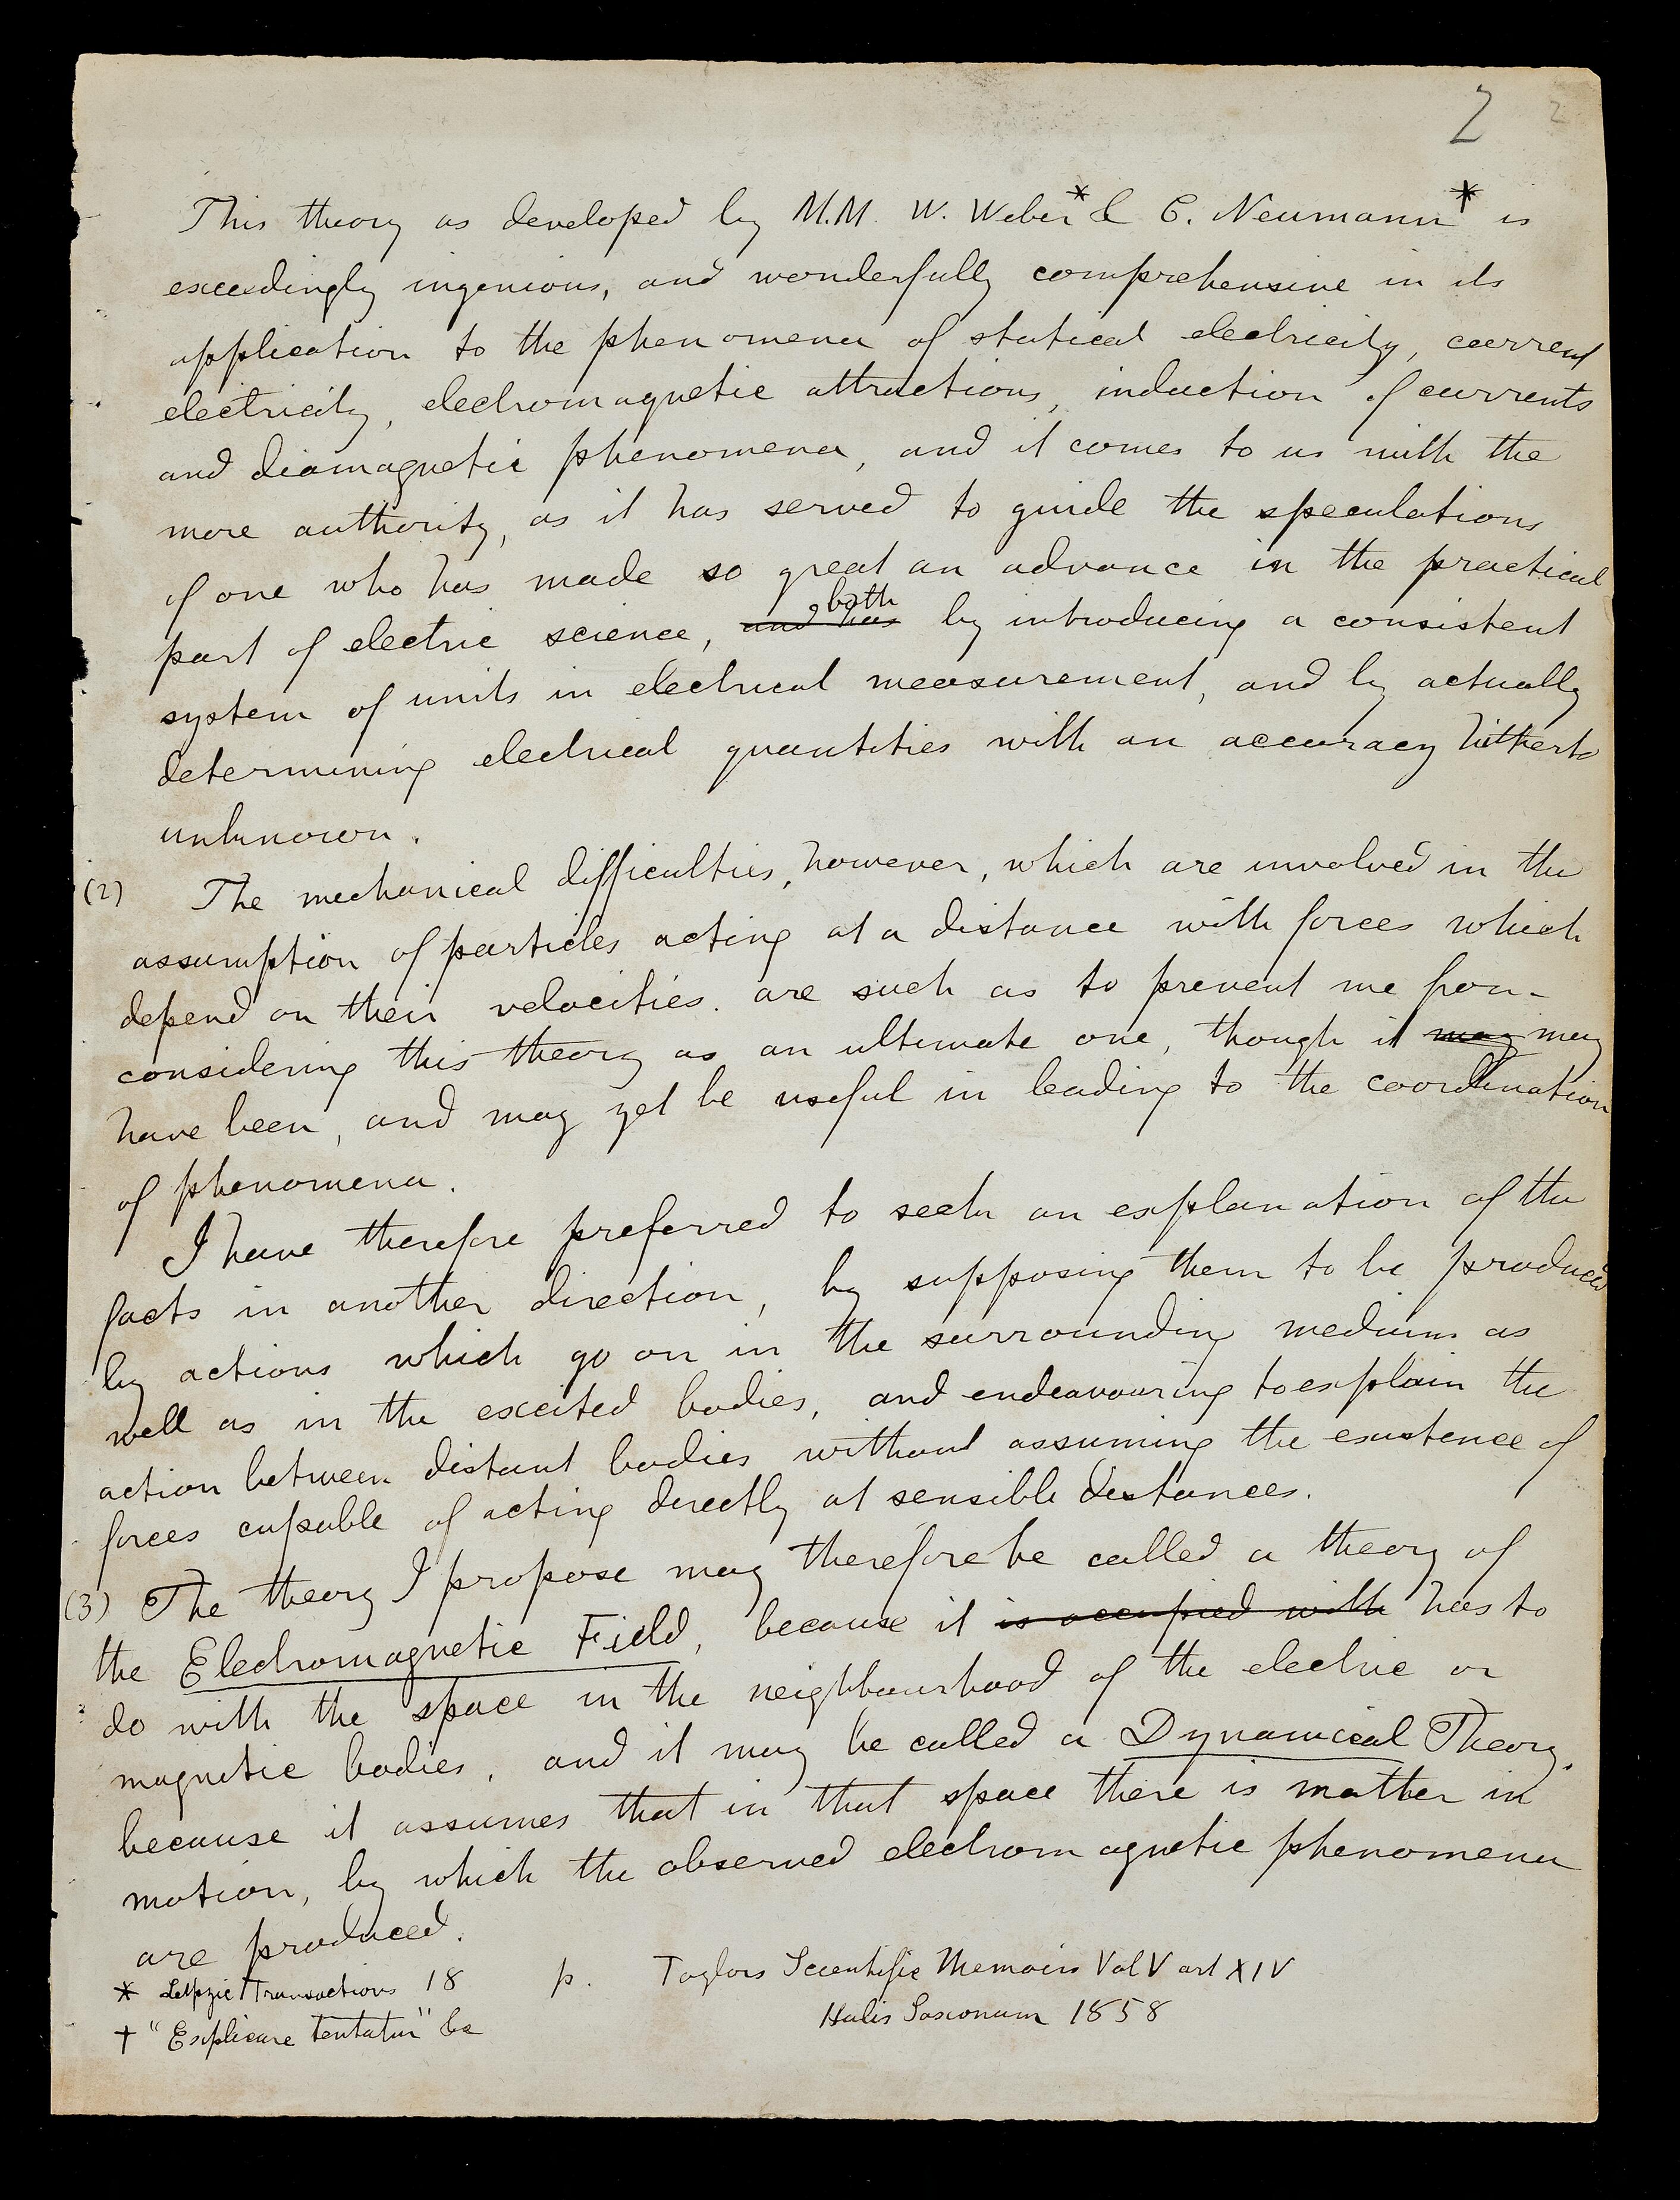 2 2
This theory as developed by M.M. W. Weber* & C. Neumann† is
exceedingly ingenious, and wonderfully comprehensive in its
application to the phenomena of statical electricity, current
electricity, electromagnetic attractions, induction of currents
and diamagnetic phenomena, and it comes to us with the
more authority, as it has served to guide the speculations
of one who has made so great an advance in the practical
both
part of electric science, and has by introducing a consistent
system of units in electrical measurement, and by actually
determining electrical quantities with an accuracy hitherto
unknown.
(2) The mechanical difficulties, however, which are involved in the
assumption of particles acting at a distance with forces which
depend on their velocities. are such as to prevent me from
considering this theory as an ultimate one, though it may may
have been, and may yet be useful in leading to the coordination
of phenomena.
I have therefore preferred to seek an explanation of the
facts in another direction, by supposing them to be produced
by actions which go on in the surrounding medium as
well as in the excited bodies, and endeavouring to explain the
action between distant bodies without assuming the existence of
forces capable of acting directly at sensible distances.
(3) The theory I propose may therefore be called a theory of
the Electromagnetic Field, because it is occupied with has to
do with the space in the neighbourhood of the electric or
magnetic bodies, and it may be called a Dynamical Theory,
because it assumes that in that space there is matter in
motion, by which the observed electromagnetic phenomena
are produced.
* Leipzic Transactions 18 p. Taylors Scientific Memoirs Vol V art XIV
† "Explicare tentatur" &c Halis Saxonum 1858